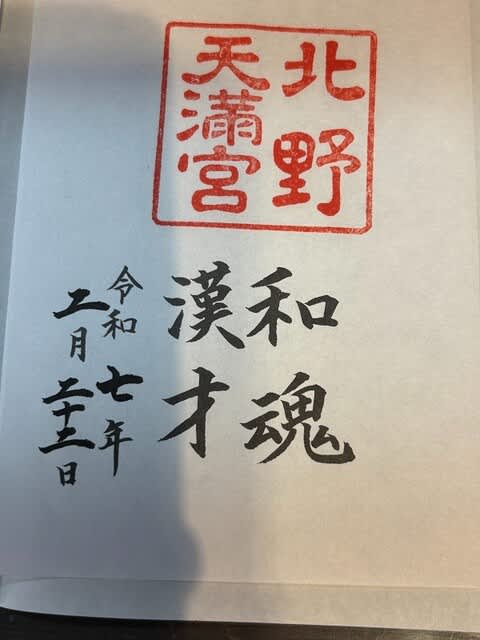 北野
天満宮
和魂
漢才
令和七年
二月二十二日